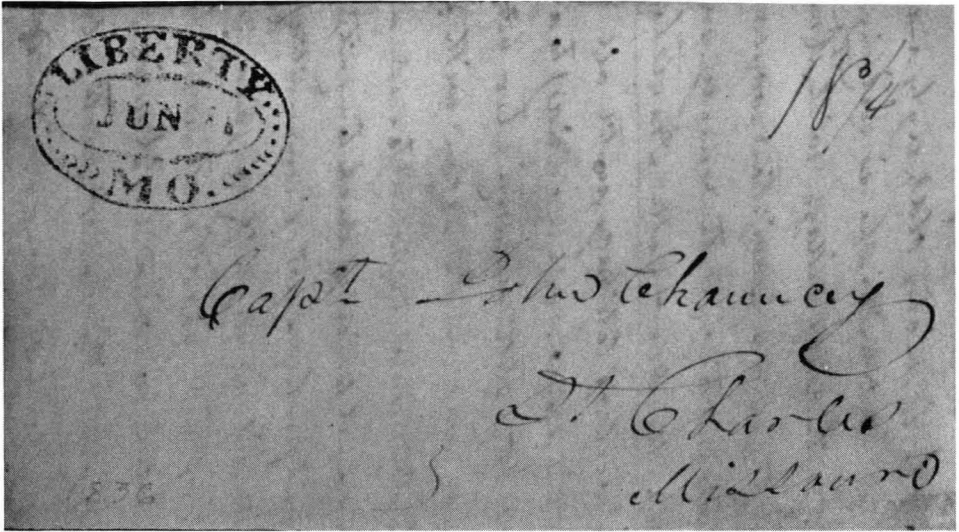 LIBERTY
JUN
MO.
18 3/4
Capt John Chauncey
St Charles
Missouri
1836